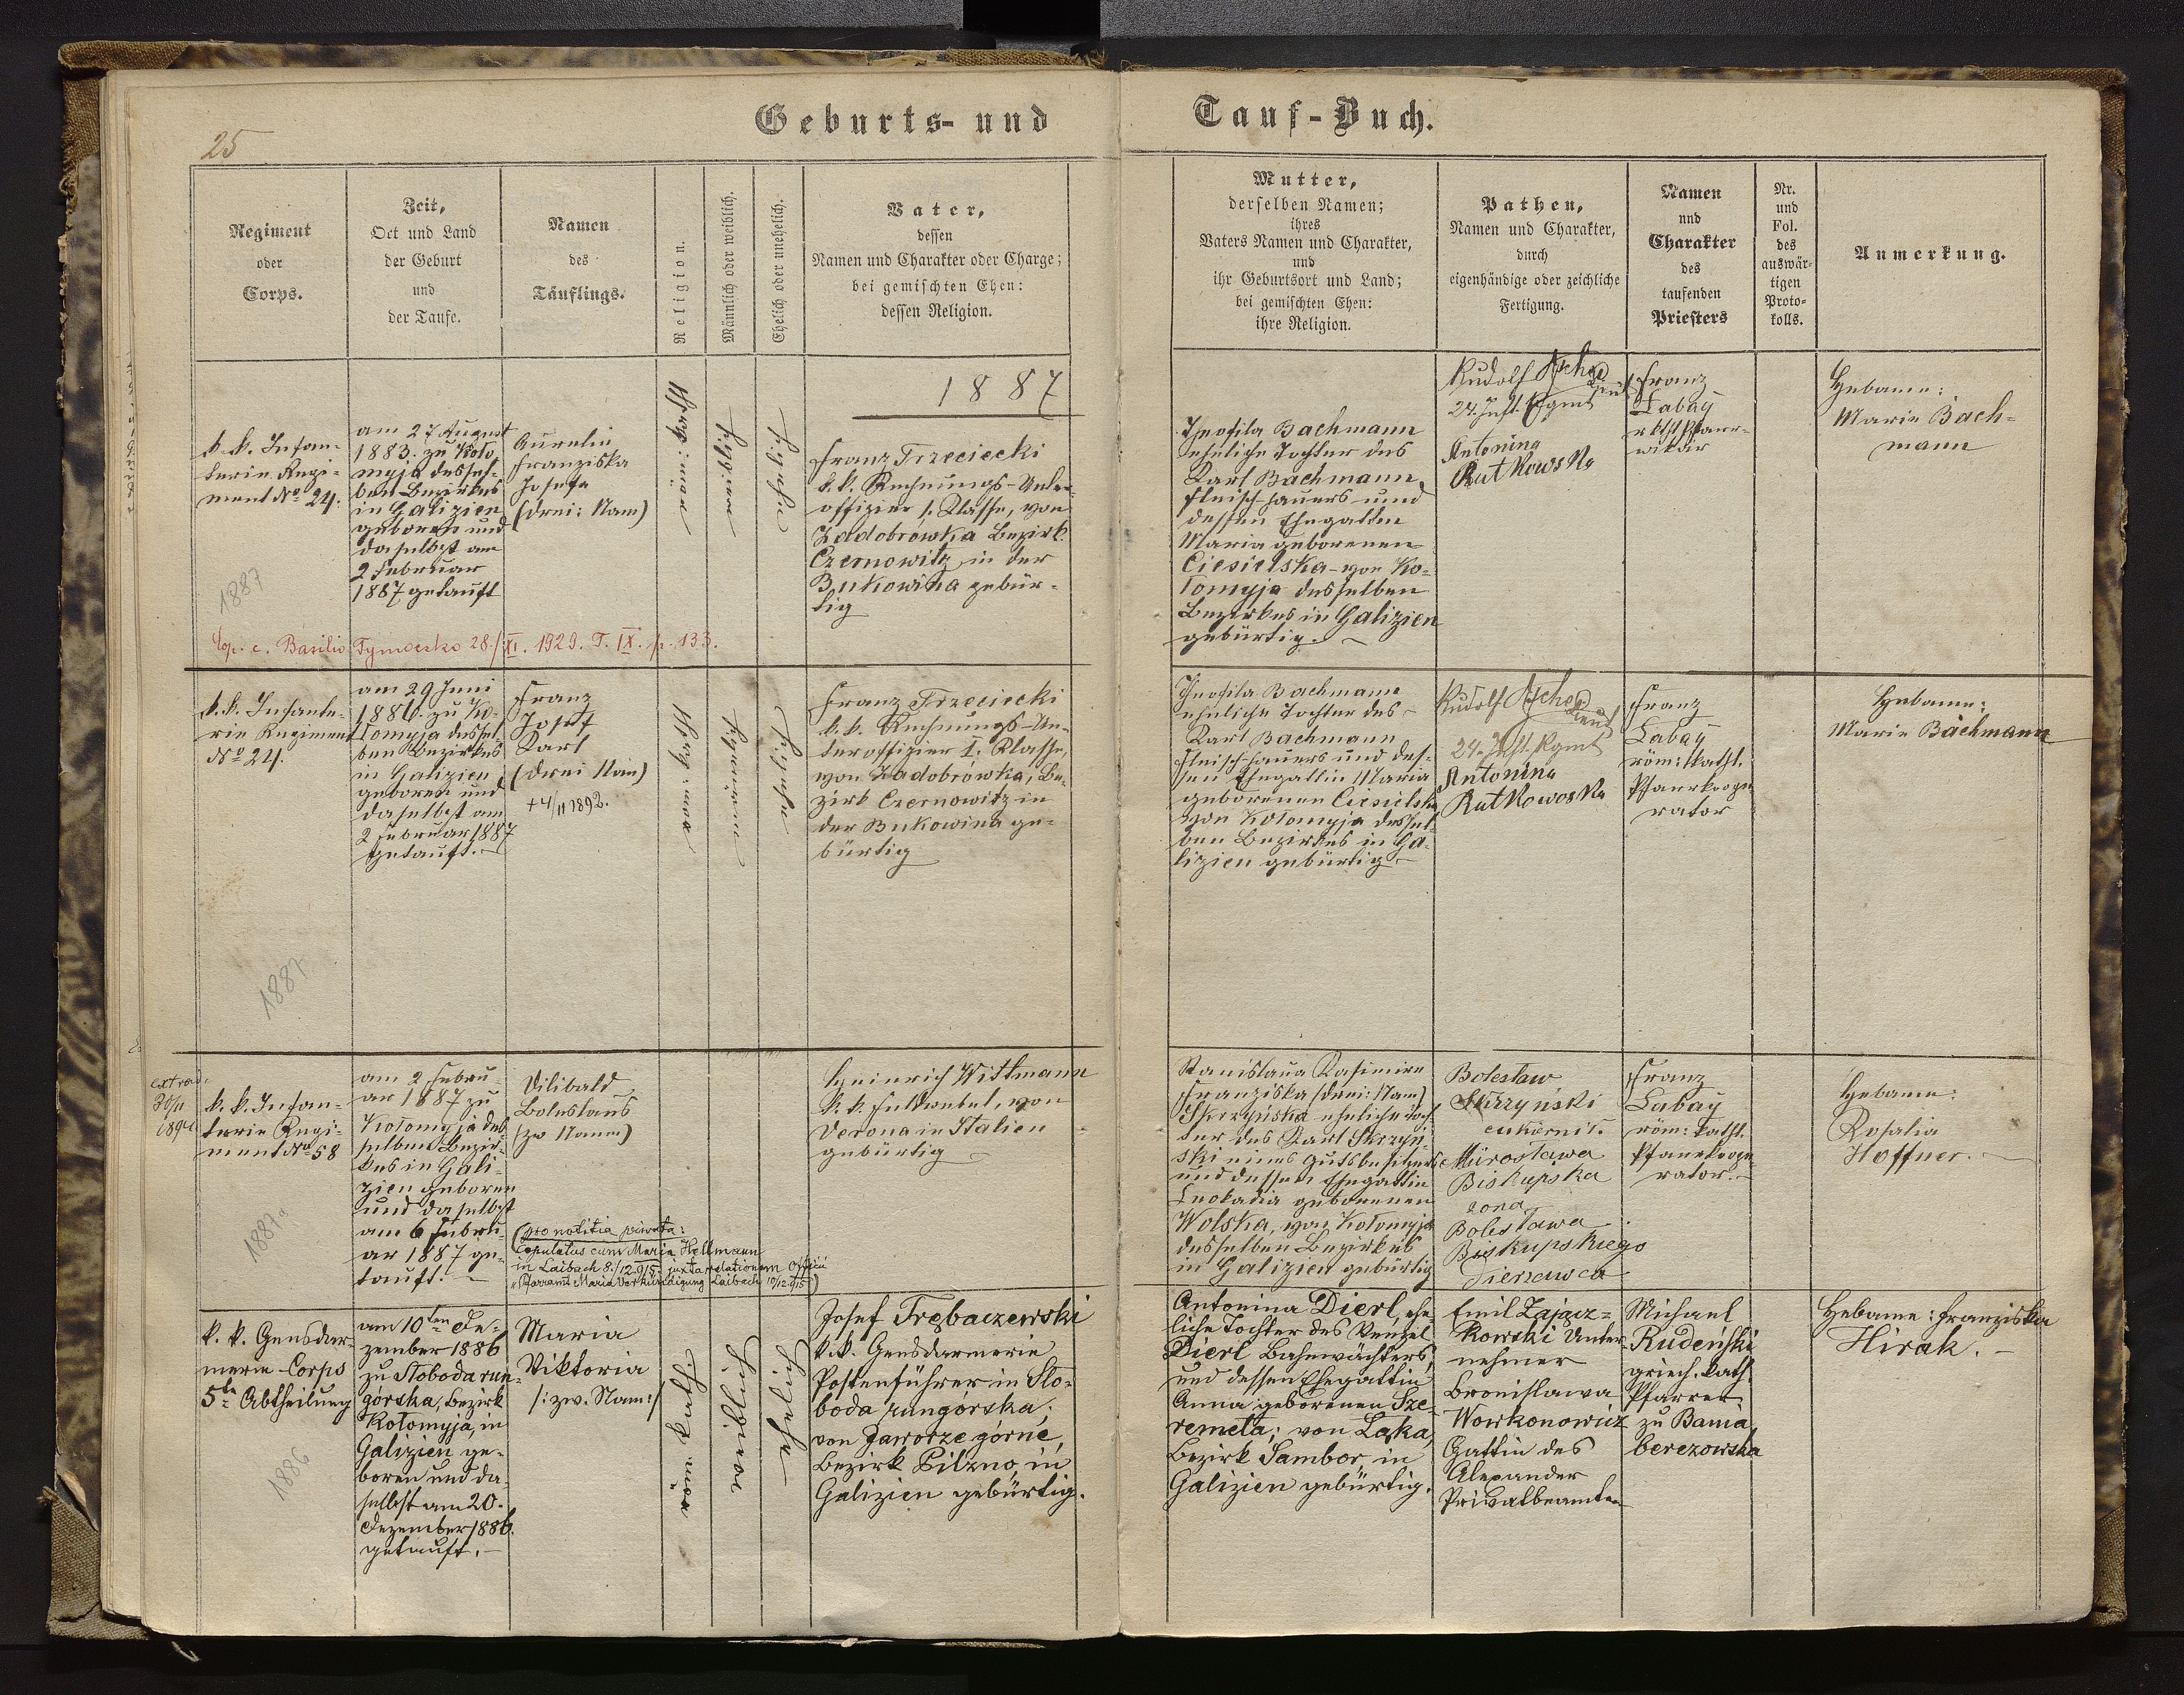 Geburts- und Tauf-Buch.
25
Regiment
oder
Corps.
Zeit,
Ort und Land
der Geburt
und
der Taufe.
Namen
des
Täuflings.
Religion.
Männlich oder weiblich.
Ehelich oder unehelich.
Vater,
dessen
Namen und Charakter oder Charge;
bei gemischten Ehen:
dessen Religion.
Mutter,
derselben Namen;
ihres
Vaters Namen und Charakter,
und
ihr Geburtsort und Land;
bei gemischten Ehen:
ihre Religion.
Pathen,
Namen und Charakter,
durch
eigenhändige oder zeichliche
Fertigung.
Namen
und
Charakter
des
taufenden
Priesters
Nr.
und
Fol.
des
auswär-
tigen
Proto-
kolls.
Anmerkung.
1887
k. k. Infan-
terie Regi-
ment No 24.
1887
am 27 August
1883. zu Kolo
myja dessel-
ben Bezirkes
in Galizien
geboren und
daselbst am
2 Februar
1887 getauft
Aurelia
Franziska
Josefa
(drei: Nam)
Franz Trzeciecki
k. k. Rechnungs-Unter-
offizier 1. Klasse, von
Zadobrówka Bezirk
Czernowitz in der
Bukowina gebür-
tig
Theofila Bachmann
eheliche Tochter des
Karl Bachmann,
Fleischhauers und
dessen Ehegattin
Maria geborenen
Ciesielska von Ko-
lomyja desselben
Bezirkes in Galizien
gebürtig.
Rudolf
24. Inft. Rgmt
Antonina
Rutkowska
Franz
Labay
Hebame:
Marie Bach-
mann
Cop. c. Basilio Tymoczko 28./XI. 1929. T. IX. p. 133.
k. k. Infante-
rie Regiment
No 24.
1887
am 29 Juni
1886. zu Ko-
lomyja dessel
ben Bezirkes
in Galizien
geboren und
daselbst am
2 Februar 1887
getauft.
Franz
Josef
Karl
(drei Nam)
+ 4/11 1892.
Franz Trzeciecki
k. k. Rechnungs-Un-
teroffizier I. Klasse,
von Zadobrówka, Be-
zirk Czernowitz in
der Bukowina ge-
bürtig
Theofila Bachmann
eheliche Tochter des
Karl Bachmann
Fleischhauers und des-
sen Ehegattin Maria
geborenen Ciesielska
von Kolomyja dessel-
ben Bezirkes in Ga-
lizien gebürtig.
Rudolf
24. Inft. Rgmt
Antonina
Rutkowska
Franz
Labay
röm: kathl.
Pfarrkoope
rator
Hebame:
Marie Bachmann
extrad.
30/11
1894
k. k. Infan-
terie Regi-
ment No 58
1887
am 2 Febru-
ar 1887 zu
Kolomyja des
selben Bezir-
kes in Gali-
zien geboren
und daselbst
am 6 Febru-
ar 1887 ge-
tauft.
Vilibald
Boleslaus
(zw Namen)
(pro notitia privata:
Copulatus cum Maria Hellmann
in Laibach 8./12.915. juxta relationem officii
"Pfarramt Maria Verkündigung Laibach 10/12.915)
Heinrich Wittmann
k. k. Feldwebel, von
Verona in Italien
gebürtig
Stanislaua Kasimira
Franziska (drei: Nam)
Skrzyńska eheliche Toch
ter des Karl Skrzyń-
ski eines Gutsbesitzers
und dessen Ehegattin
Leokadia geborenen
Wolska, von Kolomyja
desselben Bezirkes
in Galizien gebürtig
Bolesław
Skrzyński
cukiernik
Mirosława
Biskupska
żona
Bolesława
Biskupskiego
Dzierżawca
Franz
Labay
röm: kathl.
Pfarrkoope
rator.
Hebame:
Rosalia
Hoffner.
k. k. Gensdar-
merie-Corps
5te Abtheilung
1886
am 10ten De-
zember 1886
zu Sloboda run-
górska, Bezirk
Kołomyja, in
Galizien ge-
boren und da-
selbst am 20.
Dezember 1886.
getauft.
Maria
Viktoria
/: zw. Nam:/
Josef Trębaczewski
k. k. Gensdarmerie
Postenführer in Slo-
boda rungórska;
von Jaworze górne,
Bezirk Pilzno, in
Galizien gebürtig.
Antonina Dierl, ehe-
liche Tochter des Wenzel
Dierl Bahnwächters,
und dessen Ehegattin
Anna geborenen Sze-
remeta; von Łąka,
Bezirk Sambor, in
Galizien gebürtig.
Emil Zającz=
kowski Unter-
nehmer
Bronislawa
Wowkonowicz
Gattin des
Alexander
Privatbeamten
Michael
Rudeński
griech. kath.
Pfarrer
zu Bania
berezowska
Hebame: Franziska
Hirak.